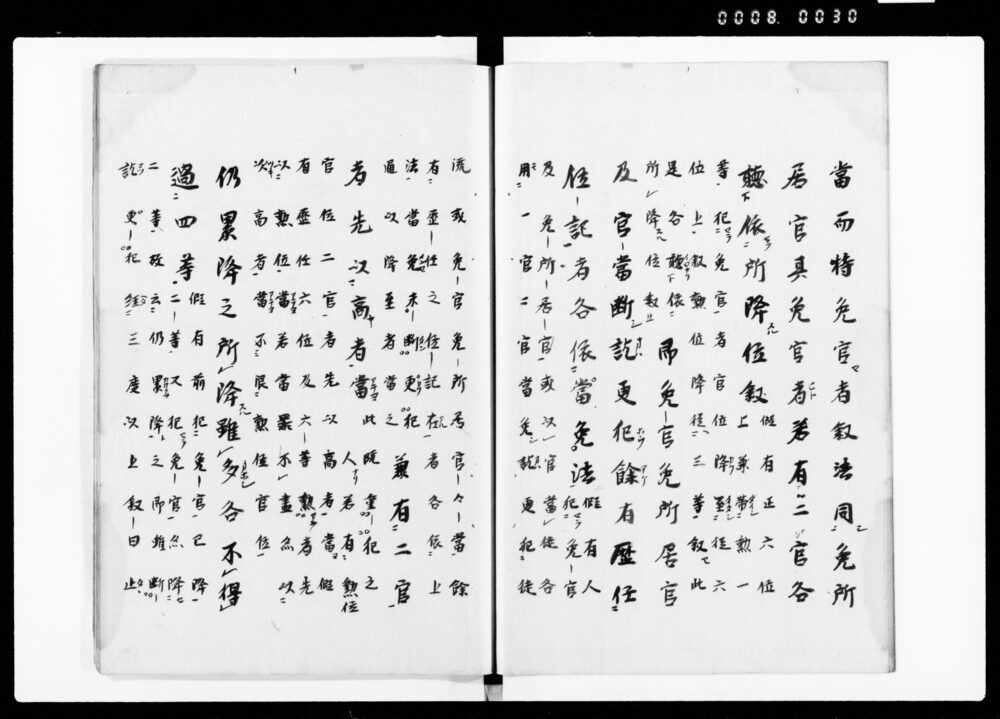 0008. 0030
當而特免官者叙法同免所
居官其免官者若有二官各
聽依所降位叙 假有正六位
上兼帶勲一
等犯免官者官位降至從六
位上叙勲位降從三等叙此
是各聽依
所降位叙 即免官免所居官
及官當斷訖更犯餘有歷任
位記者各依當免法 假有人
犯免官
及免所居官或以官當徒各
用一官二官當免訖更犯徒
流或免官免所居官々當餘
有歷任之位記在者各依上
法當免未斷更犯
通以降至者當之 兼有二官
者先以高者當 此既重犯之
人若有勲位
官位二官者先以高者當假
有歷任六位及六等勲者先
以勲位當若當罪不盡然以
次高者當不限勲位官位
仍累降之所降雖多各不得
過四等 假有前犯免官已降
二等又犯免官然降
二等故云仍累降之即雖斷
訖更犯經三度以上叙日止